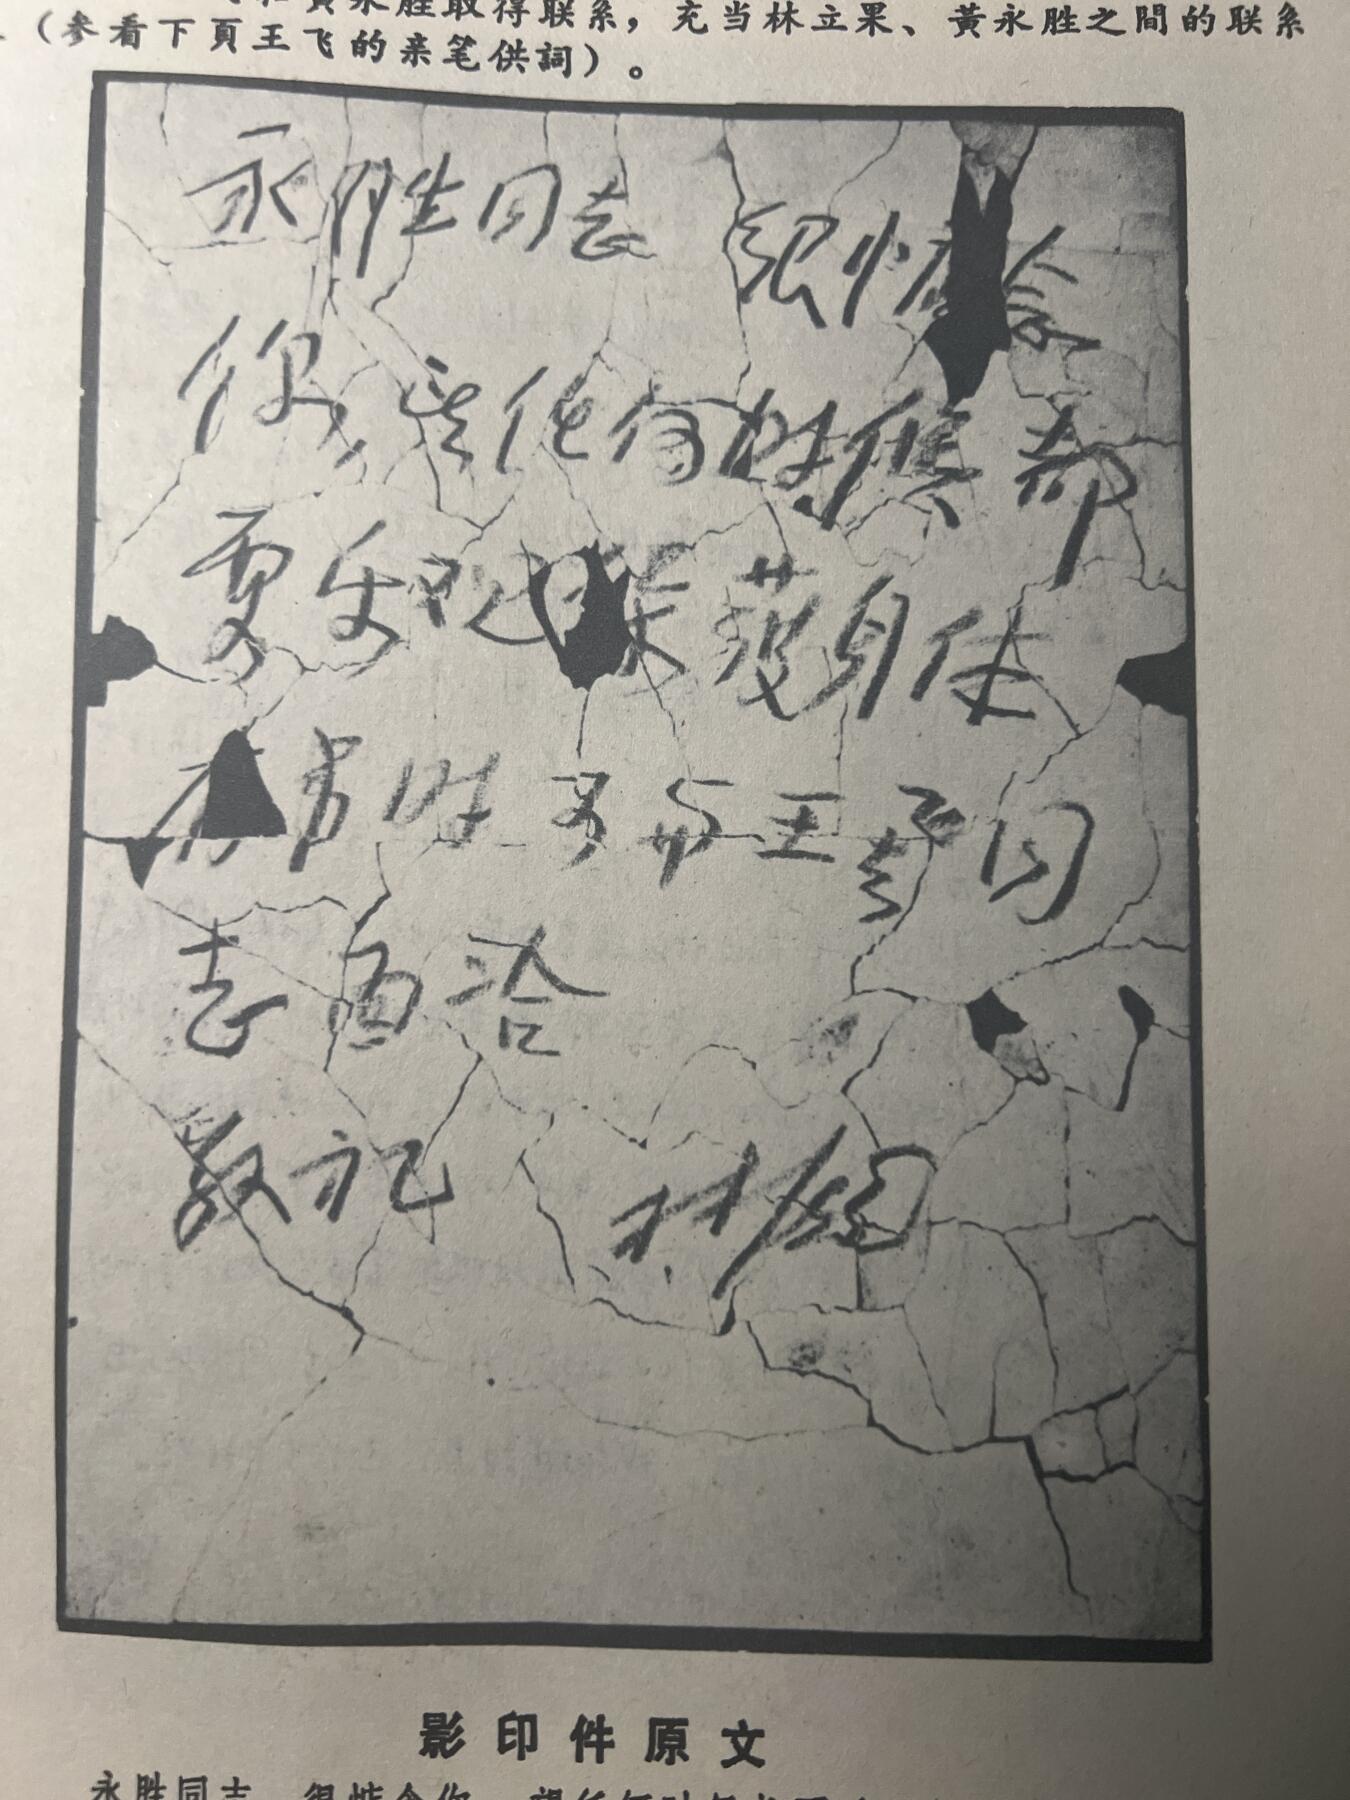 和黄永胜取得联系，充当林立果、黄永胜之間的联系
（参看下頁王飞的亲笔供詞）。
永胜同志 很惦念
你，望任何时候都
要乐观 保护身体
有事时可与王飞同
志面洽
敬礼 林彪
影印件原文
永胜同志，很惦念你，望任何时候都要